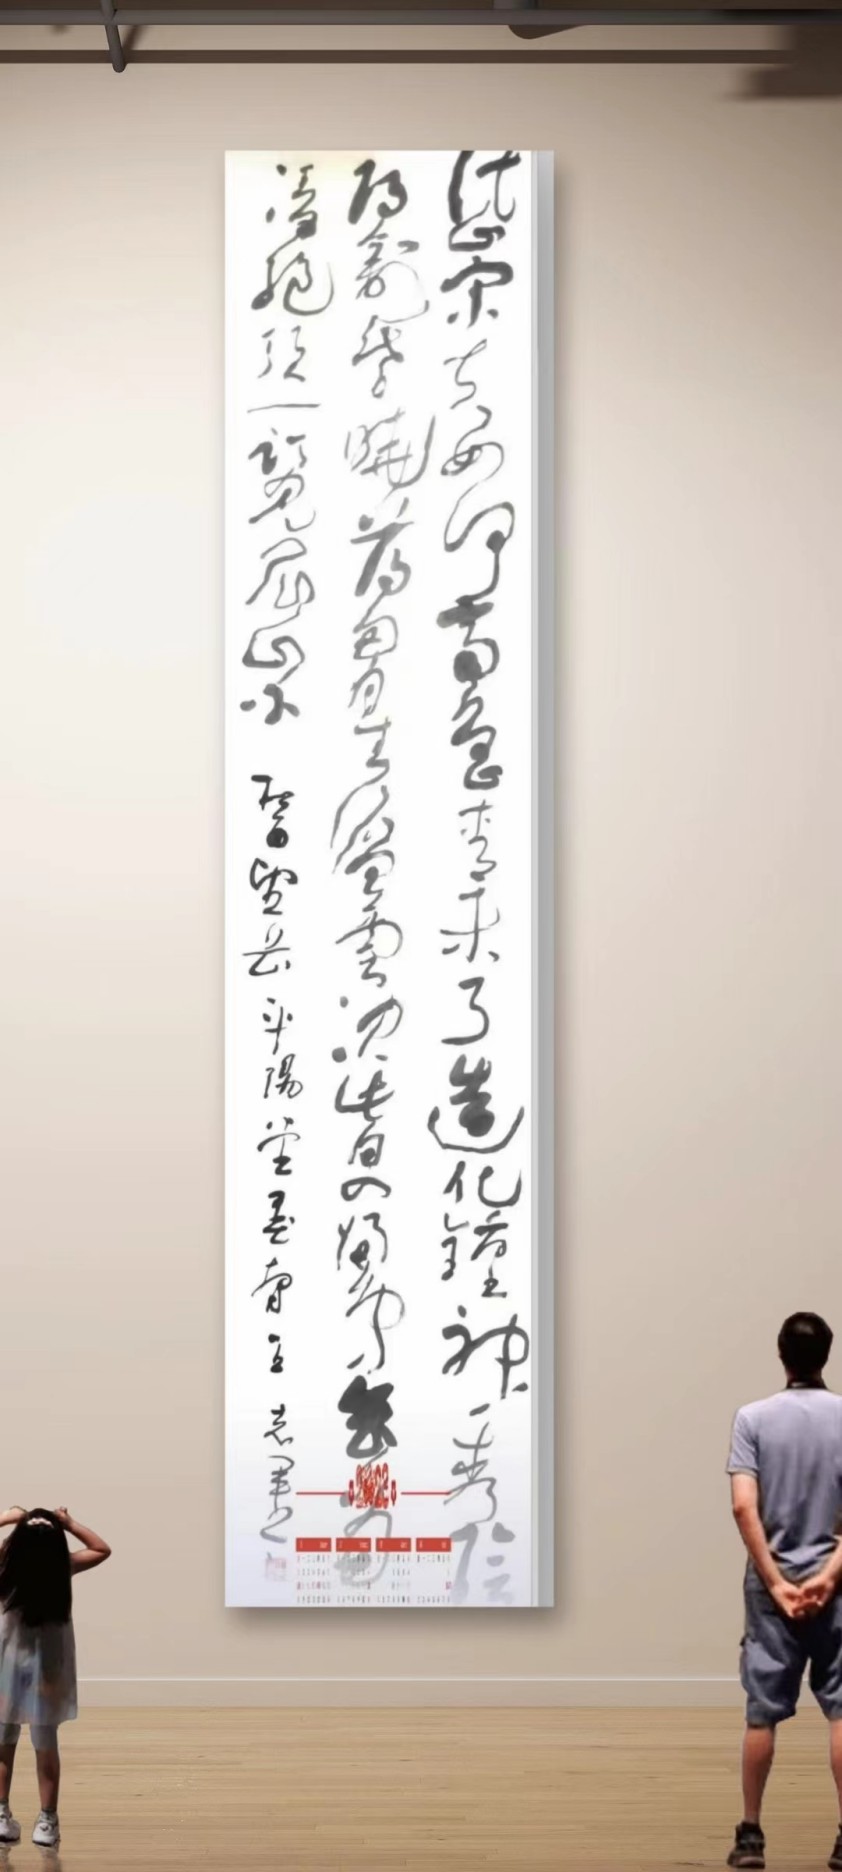 岱宗夫如何齊魯青未了造化鍾神秀陰
陽割昏曉蕩胸生層雲決眥入歸鳥會當
凌絕頂一覽眾山小 望岳 平陽堂 主 志
2022